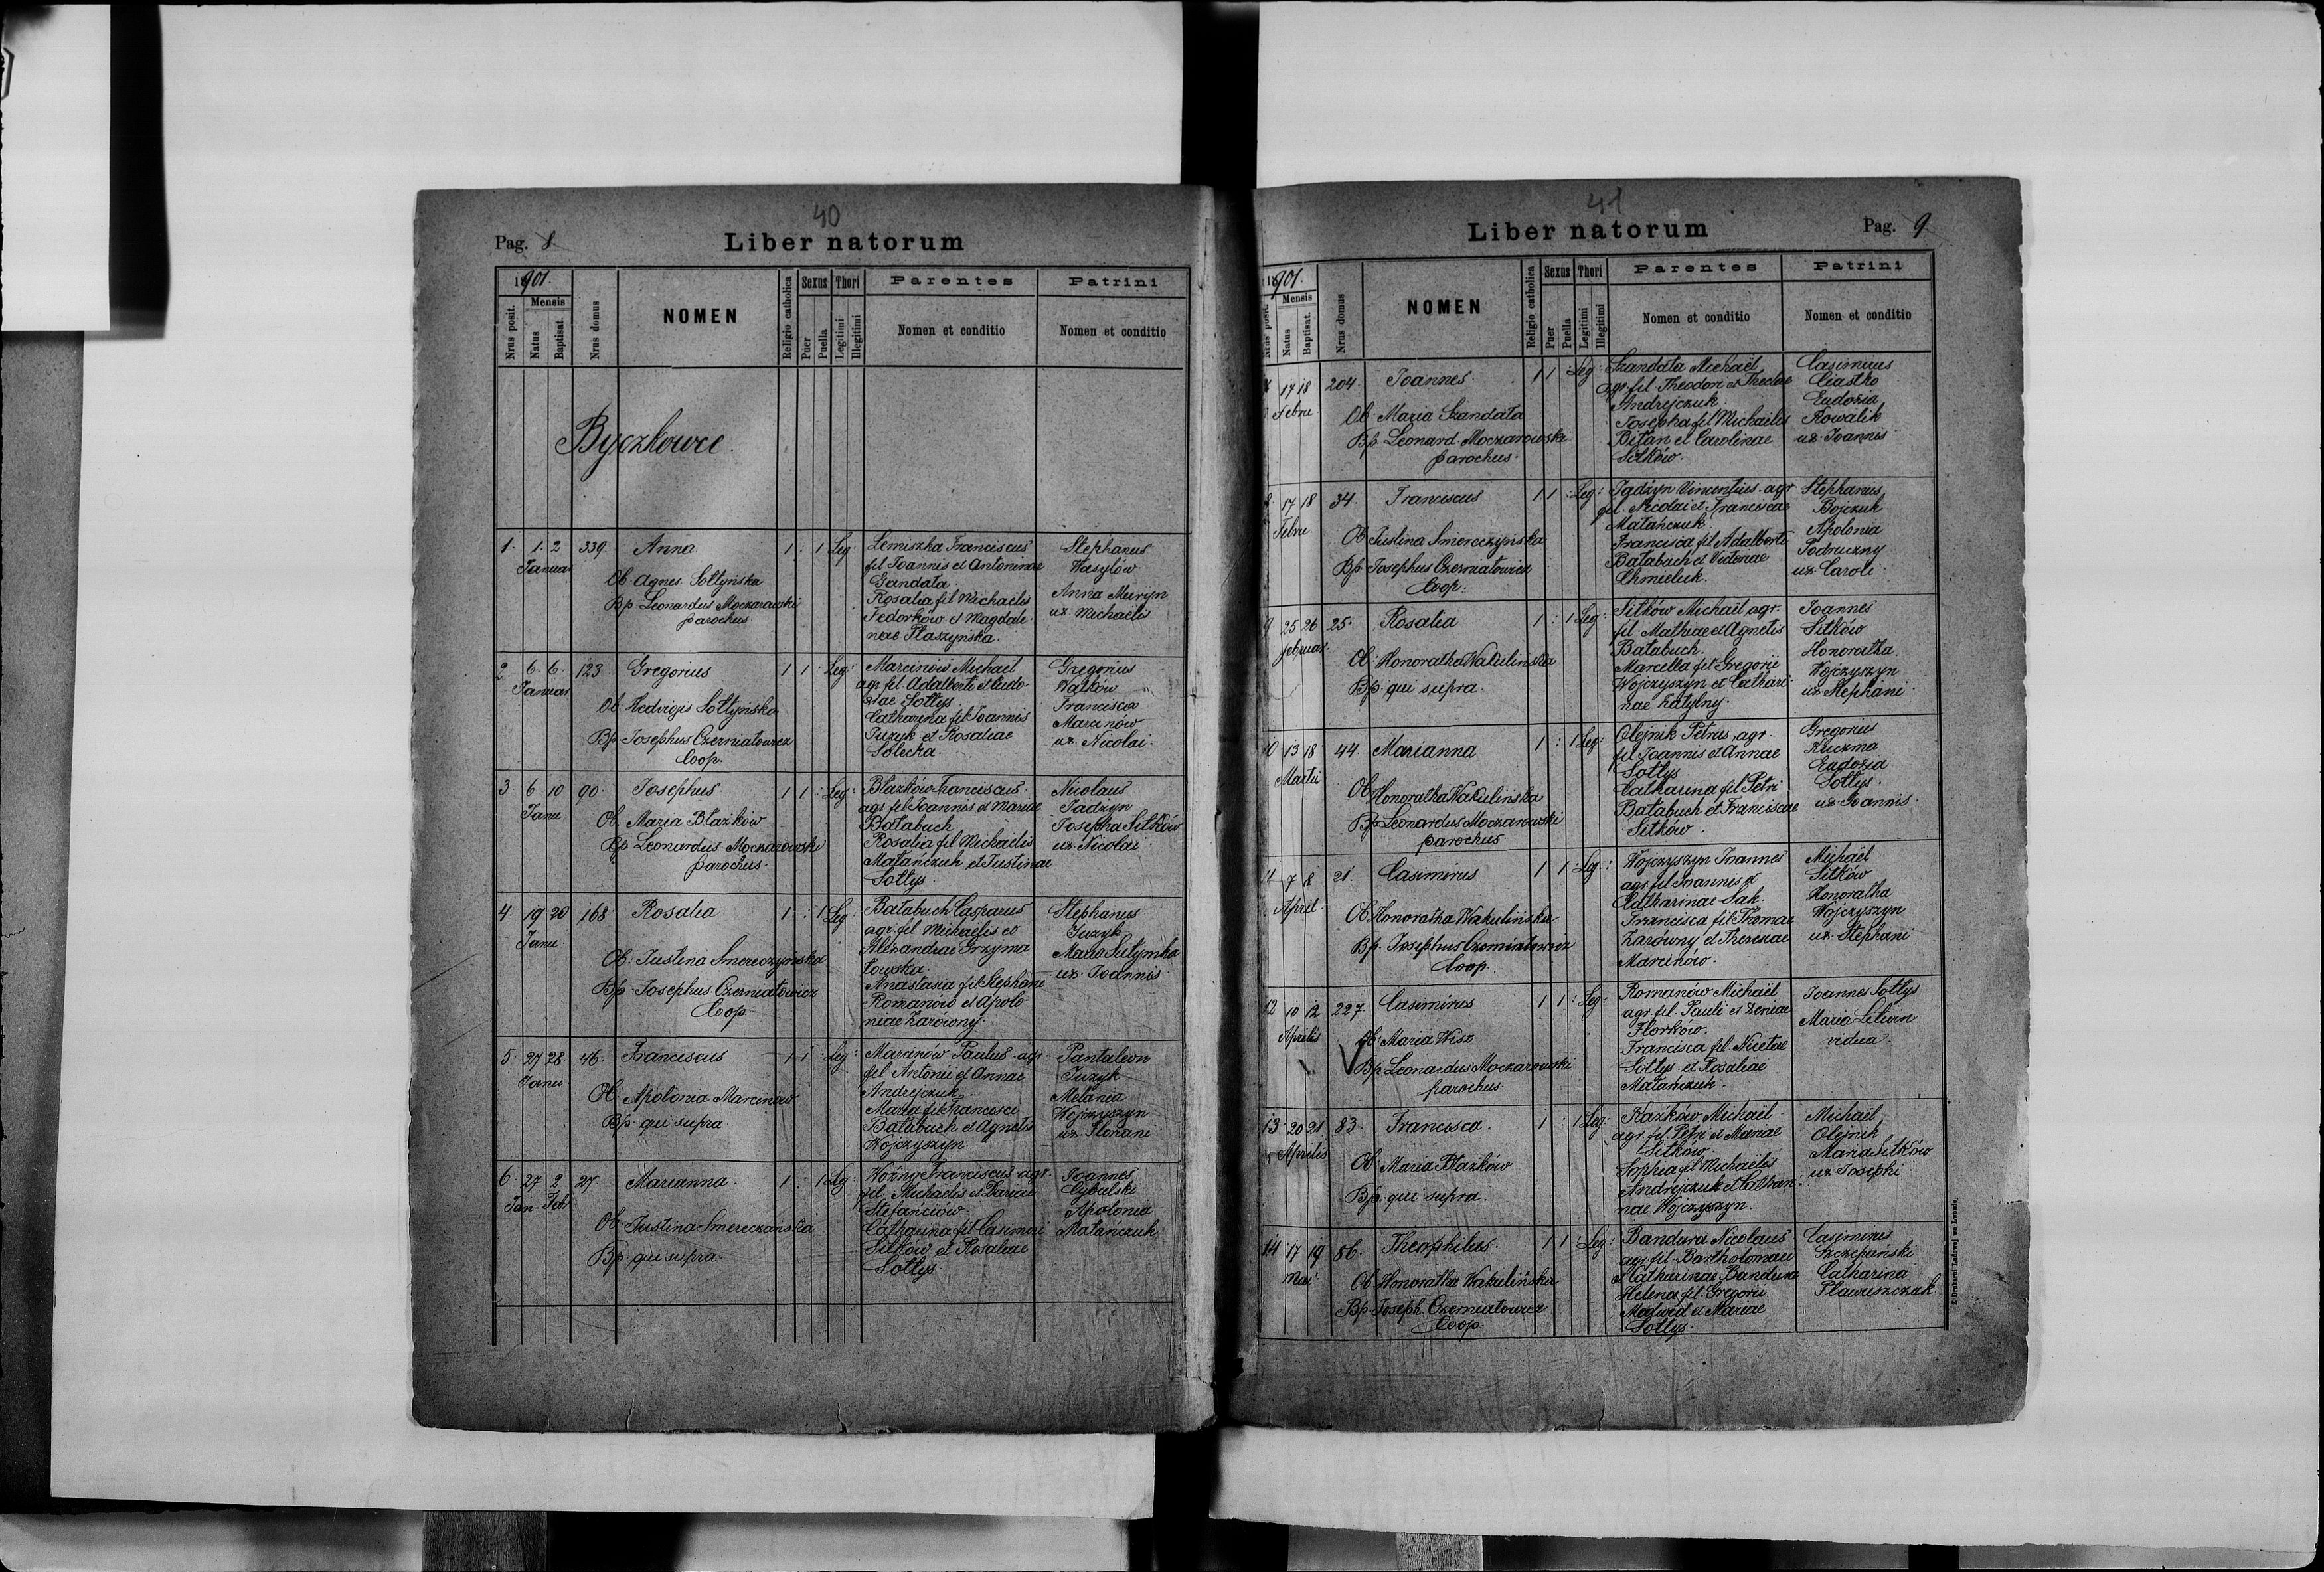 40
Pag. 8
Liber natorum
1901.
Nrus posit.
Mensis
Natus
Baptisat.
Nrus domus
NOMEN
Religio catholica
Sexus
Puer
Puella
Thori
Legitimi
Illegitimi
Parentes
Nomen et conditio
Patrini
Nomen et conditio
Byczkowce
1. 1. 2 339. Anna 1 : 1 Leg:
Januar
Ob. Agnes Sołtyńska
Bp Leonardus Moczarowski
parochus
Lemiszka Franciscus
fil Joannis et Antoninae
Gandata
Rosalia fil Michaelis
Fedorków et Magdale-
nae Płaszyńska.
Stephanus
Wasylów
Anna Muryn
ux. Michaelis
2. 6. 6. 123 Gregorius 1 1 : Leg:
Januar
Ob. Hedvigis Sołtyńska
Bp. Josephus Czerniatowicz
Coop.
Marcinów Michael
agr fil Adalberti et Eudo-
xiae Sołtys
Catharina fil Joannis
Juzyk et Rosaliae
Solecka.
Gregorius
Wałków
Francisca
Marcinów
ux. Nicolai.
3 6 10 90. Josephus 1 1 : Leg:
Janu.
Ob. Maria Błażków
Bp Leonardus Moczarowski
parochus.
Błażków Franciscus
agr fil Joannis et Mariae
Bałabuch
Rosalia fil Michaelis
Matańczuk et Justinae
Sołtys.
Nicolaus
Jadzyn
Josepha Sitków
ux. Nicolai
4. 19 20 168 Rosalia 1 : 1 Leg:
Janu.
Ob. Justina Smereczyńska
Bp. Josephus Czerniatowicz
Coop.
Bałabuch Casparus
agr. fil Michaelis et
Alexandrae Grzyma
łowska
Anastasia fil Stephani
Romanów et Apolo-
niae Zarówny.
Stephanus
Juzyk
Maria
ux. Joannis
5 27 28 46. Franciscus 1 1 : Leg:
Janu
Ob Apolonia Marcinów
Bp. qui supra.
Marcinów Paulus agr.
fil Antonii et Annae
Andrejczuk
Maria fil Francisci
Bałabuch et Agnetis
Wojczyszyn
Pantaleon
Juzyk
Melania
Wojczyszyn
ux. Floriani
6. 27 2 27 Marianna. 1 : 1 Leg.
Jan - Febr
Ob. Justina Smereczańska
Bp. qui supra.
Woźny Franciscus agr.
fil. Michaelis et Dariae
Stefanciów
Catharina fil Casimiri
Sitków et Rosaliae
Sołtys
Joannes
Cybulski
Apolonia
Matańczuk
41
Liber natorum
Pag. 9
1901.
Nrus posit.
Mensis
Natus
Baptisat.
Nrus domus
NOMEN
Religio catholica
Sexus
Puer
Puella
Thori
Legitimi
Illegitimi
Parentes
Nomen et conditio
Patrini
Nomen et conditio
17 18 204. Joannes. 1 1 Leg:
Febru
Ob. Maria Szandała
Bp. Leonard. Moczarowski
parochus.
Szandała Michaël
agr. fil Theodori et Theclae
Andrejczuk.
Josepha fil Michaelis
Bitan et Carolinae
Sitków.
Casimirus
Ciastko
Eudoxia
Kowalik
ux. Joannis
17 18 34. Franciscus 1 1 : Leg:
Febru.
Ob Justina Smereczyńska
Bp. Josephus Czerniatowicz
Coop.
Jadżyn Vincentius agr
fil. Nicolai et Franciscae
Matańczuk.
Francisca fil Adalberti
Bałabuch et
Chmieluk.
Stephanus
Bojczuk
Apolonia
Podruczny
ux. Caroli
9 25 26 25. Rosalia 1 : 1 Leg:
februar.
Ob: Honoratha Wakulińska
Bp. qui supra.
Sitków Michaël agr.
fil. Mathiae et Agnetis
Bałabuch.
Marcella fil Gregorii
Wojczyszyn et Cathari-
nae Zatylny.
Joannes
Sitków
Honoratha
Wojczyszyn
ux. Stephani
10 13 18 44. Marianna 1 : 1 Leg:
Martii
Ob Honoratha Wakulińska
Bp Leonardus Moczarowski
parochus
Olejnik Petrus, agr.
fil Joannis et Annae
Sołtys
Catharina fil Petri
Bałabuch et Franciscae
Sitków.
Gregorius
Kuczma
Eudoxia
Sołtys.
ux. Joannis.
11 7 8 21. Casimirus 1 1 : Leg:
April.
Ob Honoratha Wakulińska
Bp. Josephus Czerniatowicz
Coop.
Wojczyszyn Joannes
agr. fil Joannis et
Catharinae Sak.
Francisca fil Thomae
Zarówny et Theresae
Marcinów.
Michaël
Sitków
Honoratha
Wojczyszyn
ux. Stephani
12 10 12 227 Casimirus 1 1 : Leg:
Aprilis
Ob Maria Wiso
Bp. Leonardus Moczarowski
parochus.
Romanów Michaël
agr. fil. Pauli et Xeniae
Florków.
Francisca fil. Nicetae
Sołtys et Rosaliae
Matańczuk.
Joannes Sołtys
Maria Litwin
vidua.
13 20 21 83. Francisca. 1 : 1 Leg:
Aprilis
Ob. Maria Błażków
Bp. qui supra.
Każków Michaël
agr. fil. Petri et Mariae
Sitków.
Sophia fil Michaelis
Andrejczuk et Cathari-
nae Wojczyszyn.
Michaël
Olejnik
Maria Sitków
ux. Josephi
14 17 19 56. Theophilus. 1 1 : Leg:
Mai
Ob Honoratha Wakulińska
Bp. Joseph. Czerniatowicz
Coop.
Bandura Nicolaus
agr. fil. Bartholomaei
et Catharinae Bandura
Helena fil. Gregorii
Medwid et Mariae
Sołtys.
Casimirus
Szczepański
Catharina
Pławuszczak
Z Drukarni Ludowej we Lwowie.